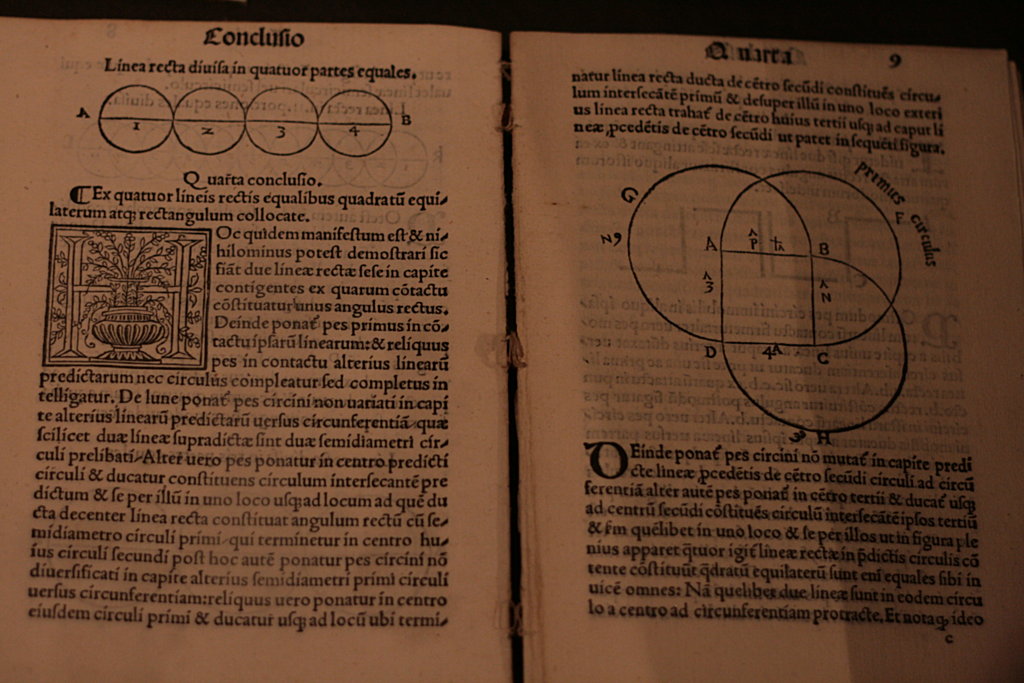 Conclusio
Linea recta diuisa in quatuor partes equales.
A 1 2 3 4 B
Quarta conclusio.
Ex quatuor lineis rectis equalibus quadratū equi-
laterum atq; rectangulum collocate.
HOc quidem manifestum est & ni-
hilominus potest demostrari sic
fiāt due lineæ rectæ sese in capite
contigentes ex quarum cōtactu
cōstituatur unus angulus rectus.
Deinde ponat̄ pes primus in cō-
tactu ipsarū linearum: & reliquus
pes in contactu alterius linearū
predictarum nec circulus compleatur sed completus in
telligatur. De lune ponat̄ pes circini non uariati in capi
te alterius linearū predictarū uersus circunferentiā quæ
scilicet duæ lineæ supradictæ sint duæ semidiametri cir-
culi prelibati. Alter uero pes ponatur in centro predicti
circuli & ducatur constituens circulum intersecantē pre
dictum & se per illū in uno loco usq; ad locum ad quē du
cta decenter linea recta constituat angulum rectū cū se-
midiametro circuli primi qui terminetur in centro hu-
ius circuli secundi post hoc autē ponatur pes circini nō
diuersificati in capite alterius semidiametri primi circuli
uersus circunferentiam: reliquus uero ponatur in centro
eiusdem circuli primi & ducatur usq; ad locū ubi termi-
Quarta 9
natur linea recta ducta de cētro secūdi constituēs circu-
lum intersecātē primū & desuper illū in uno loco exteri
us linea recta trahat̄ de cētro huius tertii usq; ad caput li
neæ p̱cedētis de cētro secūdi ut patet in sequēti figura.
primus circulus
G F
A B
D 4 C
H
DEinde ponat̄ pes circini nō mutat̄ in capite predi
cte lineæ p̱cedētis de cētro secūdi circuli ad circū
ferentiā alter autē pes ponat̄ in cētro tertii & ducat̄ usq;
ad centrū secūdi cōstituēs circulū intersecātē ipsos tertiū
& s̄m quēlibet in uno loco & se per illos ut in figura ple
nius apparet q̄tuor igit̄ lineæ rectæ in p̄dictis circulis cō
tente cōstituūt q̄dratū equilaterū sunt eni equales sibi in
uicē omnes: Nā quelibet due lineæ sunt in eodem circu
lo a centro ad circunferentiam protracte. Et nota q̱ ideo
c